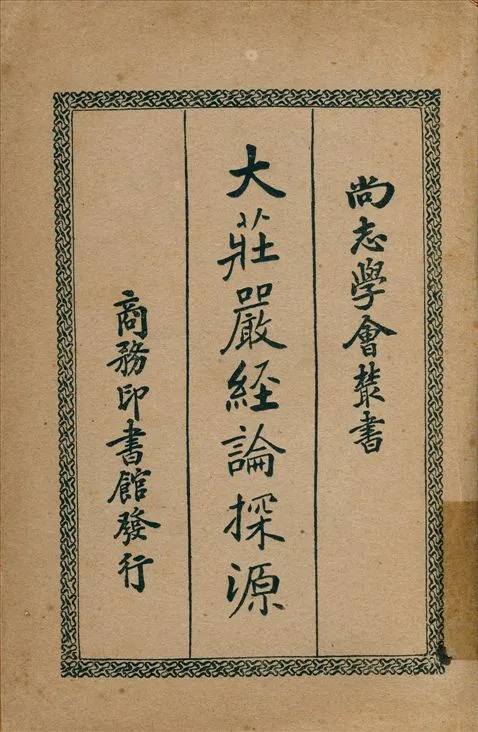 尚志學會叢書
大莊嚴經論探源
商務印書館發行